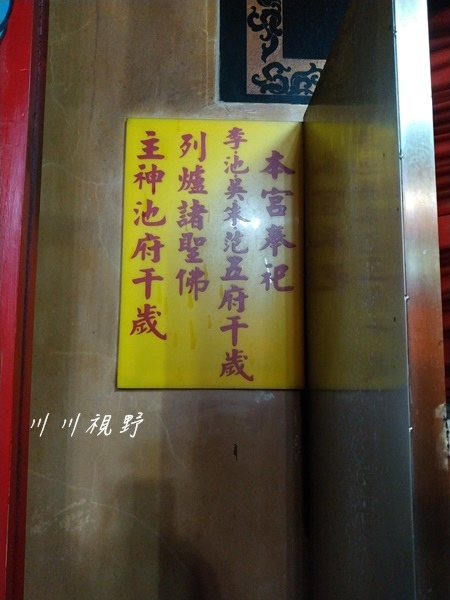 本宮奉祀
李池吳朱范五府千歲
列爐諸聖佛
主神池府千歲
川川視野